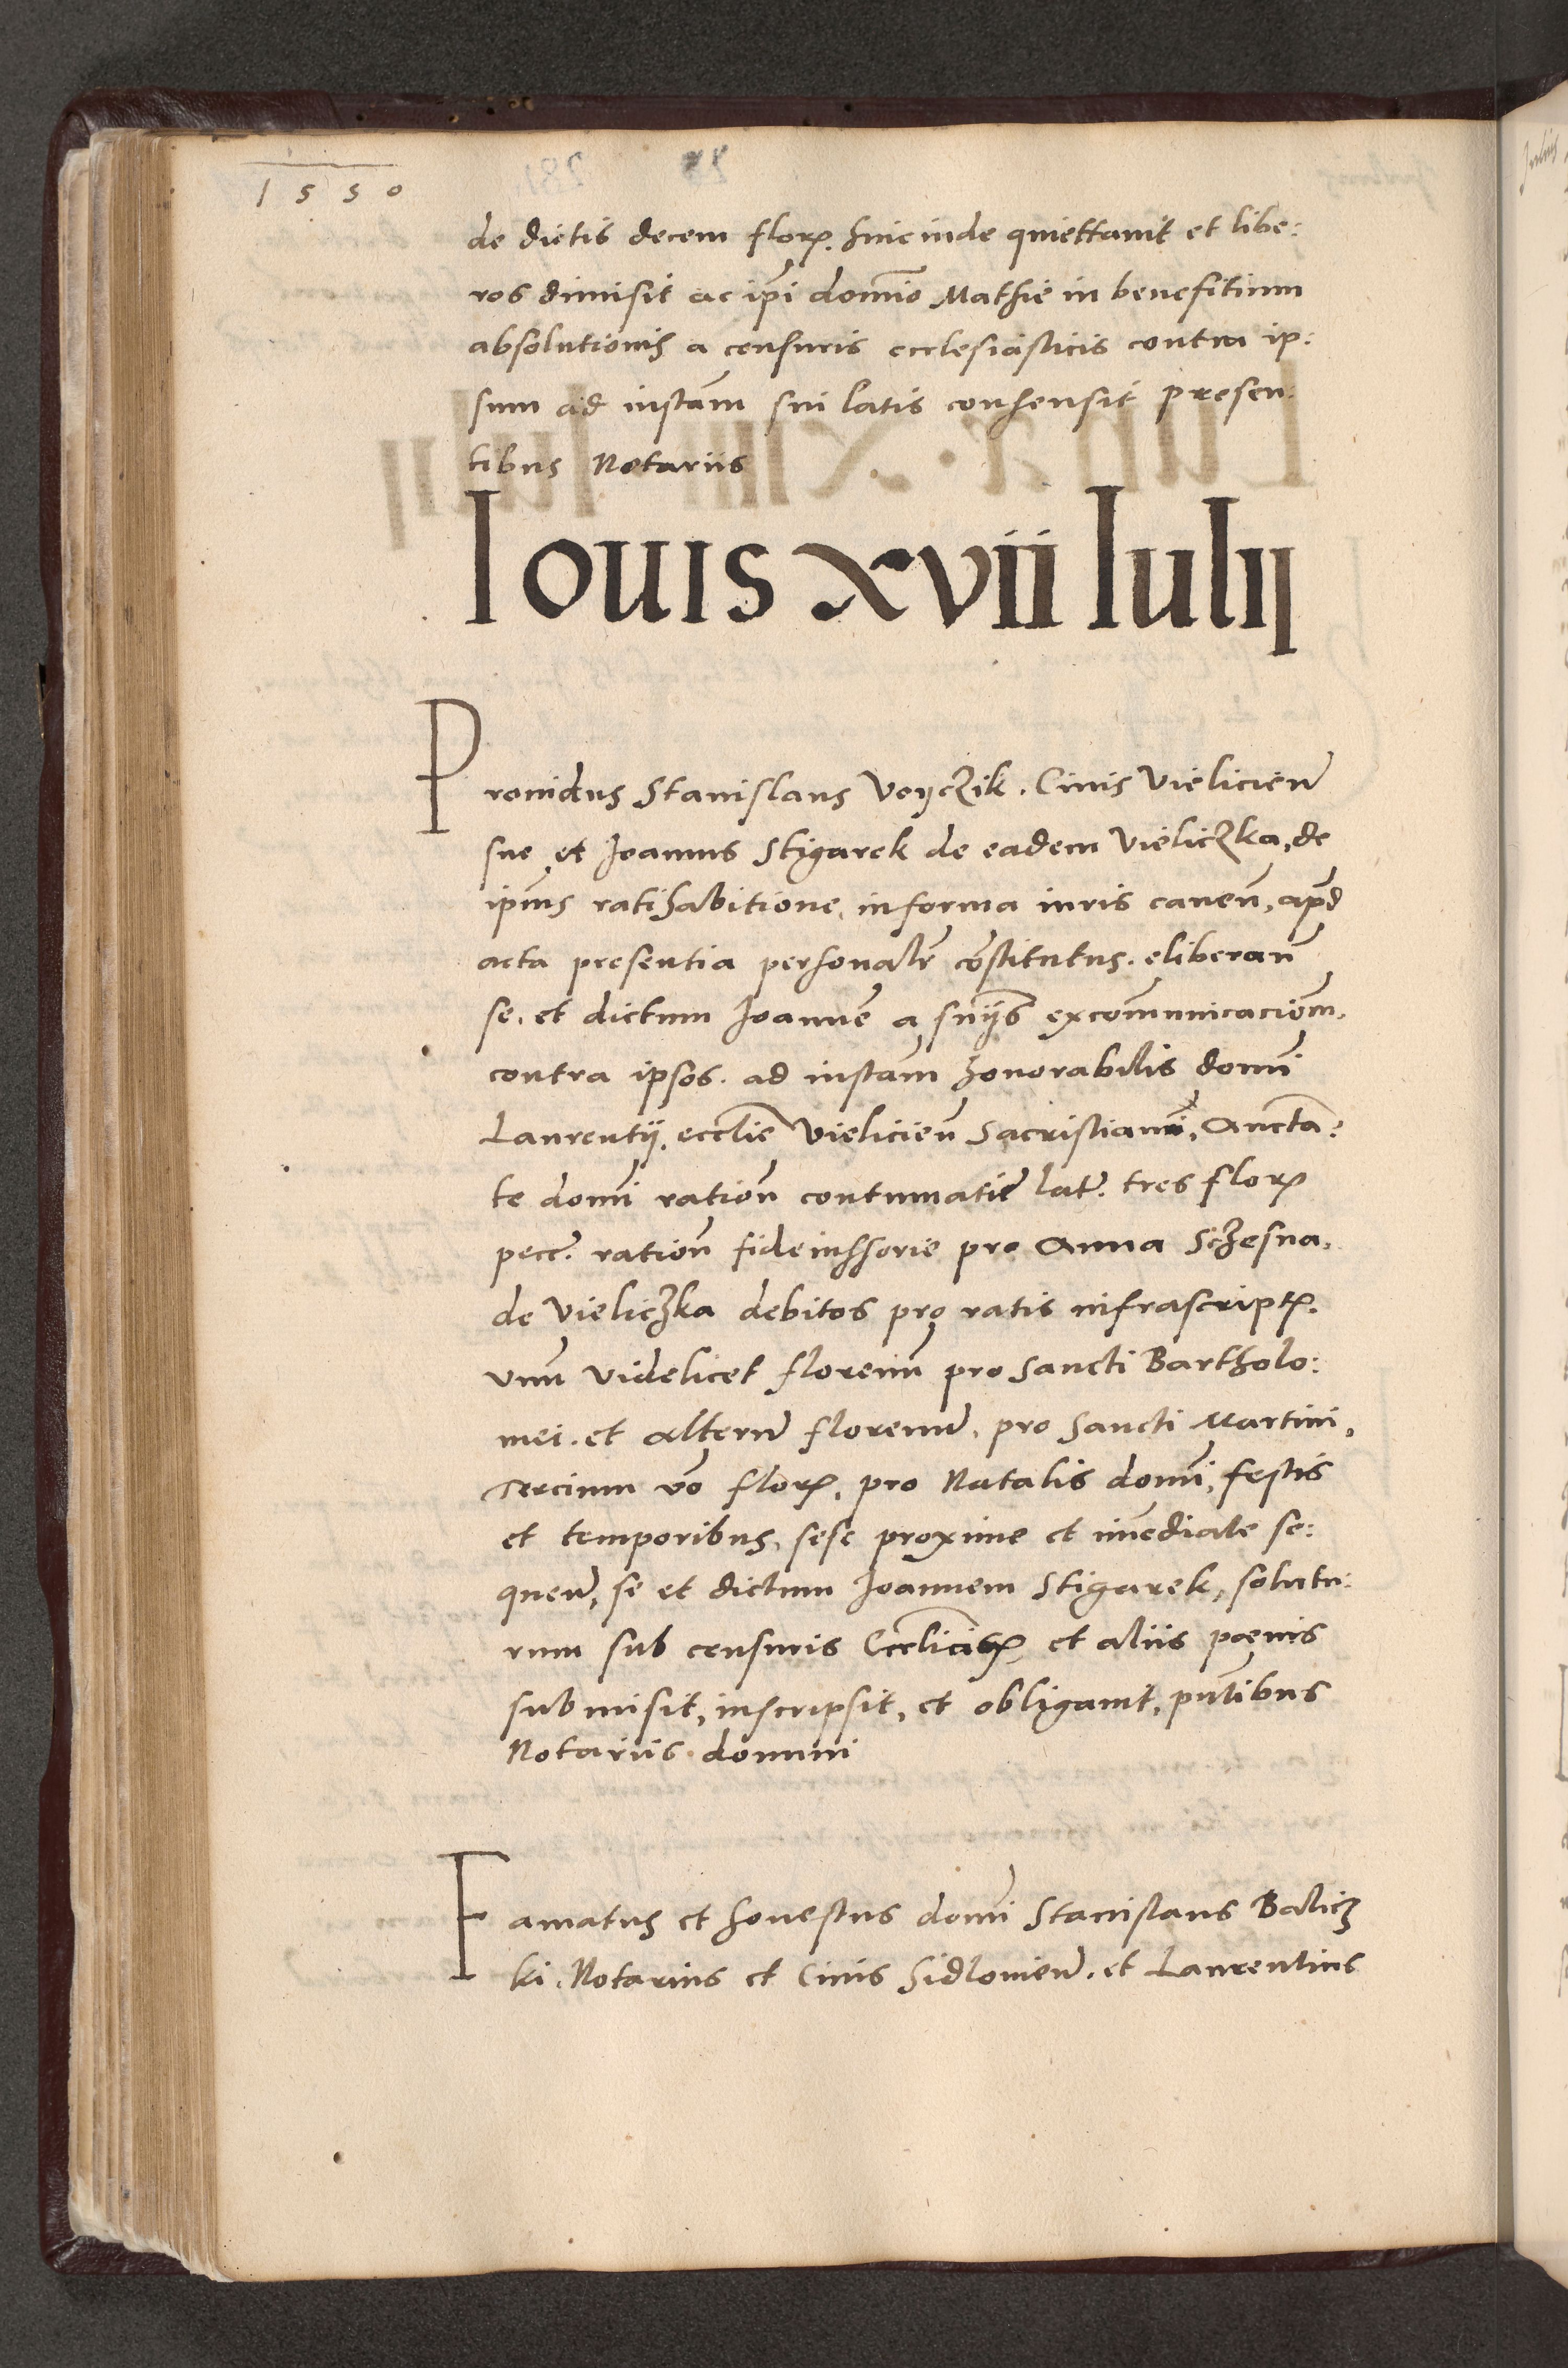 1550
de dictis decem florꝝ. hincinde quiettauit et libe:
ros dimisit ac ip̄i domīo Mathie in benefitium
absolutionis a censuris ecclesiasticis contra ip:
sum ad instām sui latis consensit presen:
tibus Notariis
Iouis xvii Iulij
Prouidus Stanislaus Voyczik. Ciuis Vielicieñ
suo et Joannis Stigarek de eadem Vieliczka, de
ip̄ius ratihabitione, in forma iuris caueñ, apd̄
acta presentia personalr̄ cōstitutus. eliberañ
se. et dictum Joannē a s̄nijs excom̄unicaciom̄.
contra ipsos. ad instām honorabilis domī
Laurentij. eccl̄ie Vielicieñ Sacristiani, Auctā:
te domī ratioñ contumatie lat̄. tres florꝝ
pecc̄. ratioñ fideiussorie pro Anna Sczesna,
de Vieliczka debitos pro ratis infrascriptꝝ.
vnū videlicet florenū pro Sancti Bartholo:
mei. et alterū florenū, pro Sancti Martini,
Tercium vō florꝝ, pro Natalis domī, festis
et temporibus, sese proxime et im̄ediate se:
queñ, se et dictum Joannem Stigarek, solutu:
rum sub censuris Eccl̄icisꝝ et aliis poenis
submisit, inscripsit, et obligauit, pn̄tibus
Notariis domini
Famatus et honestus domī Stanislaus Balicz
ki. Notarius et Ciuis Sidlouieñ. et Laurentius